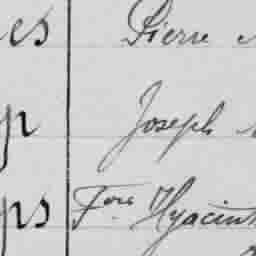 es Pierre
p Joseph
ps Fois Hyacint